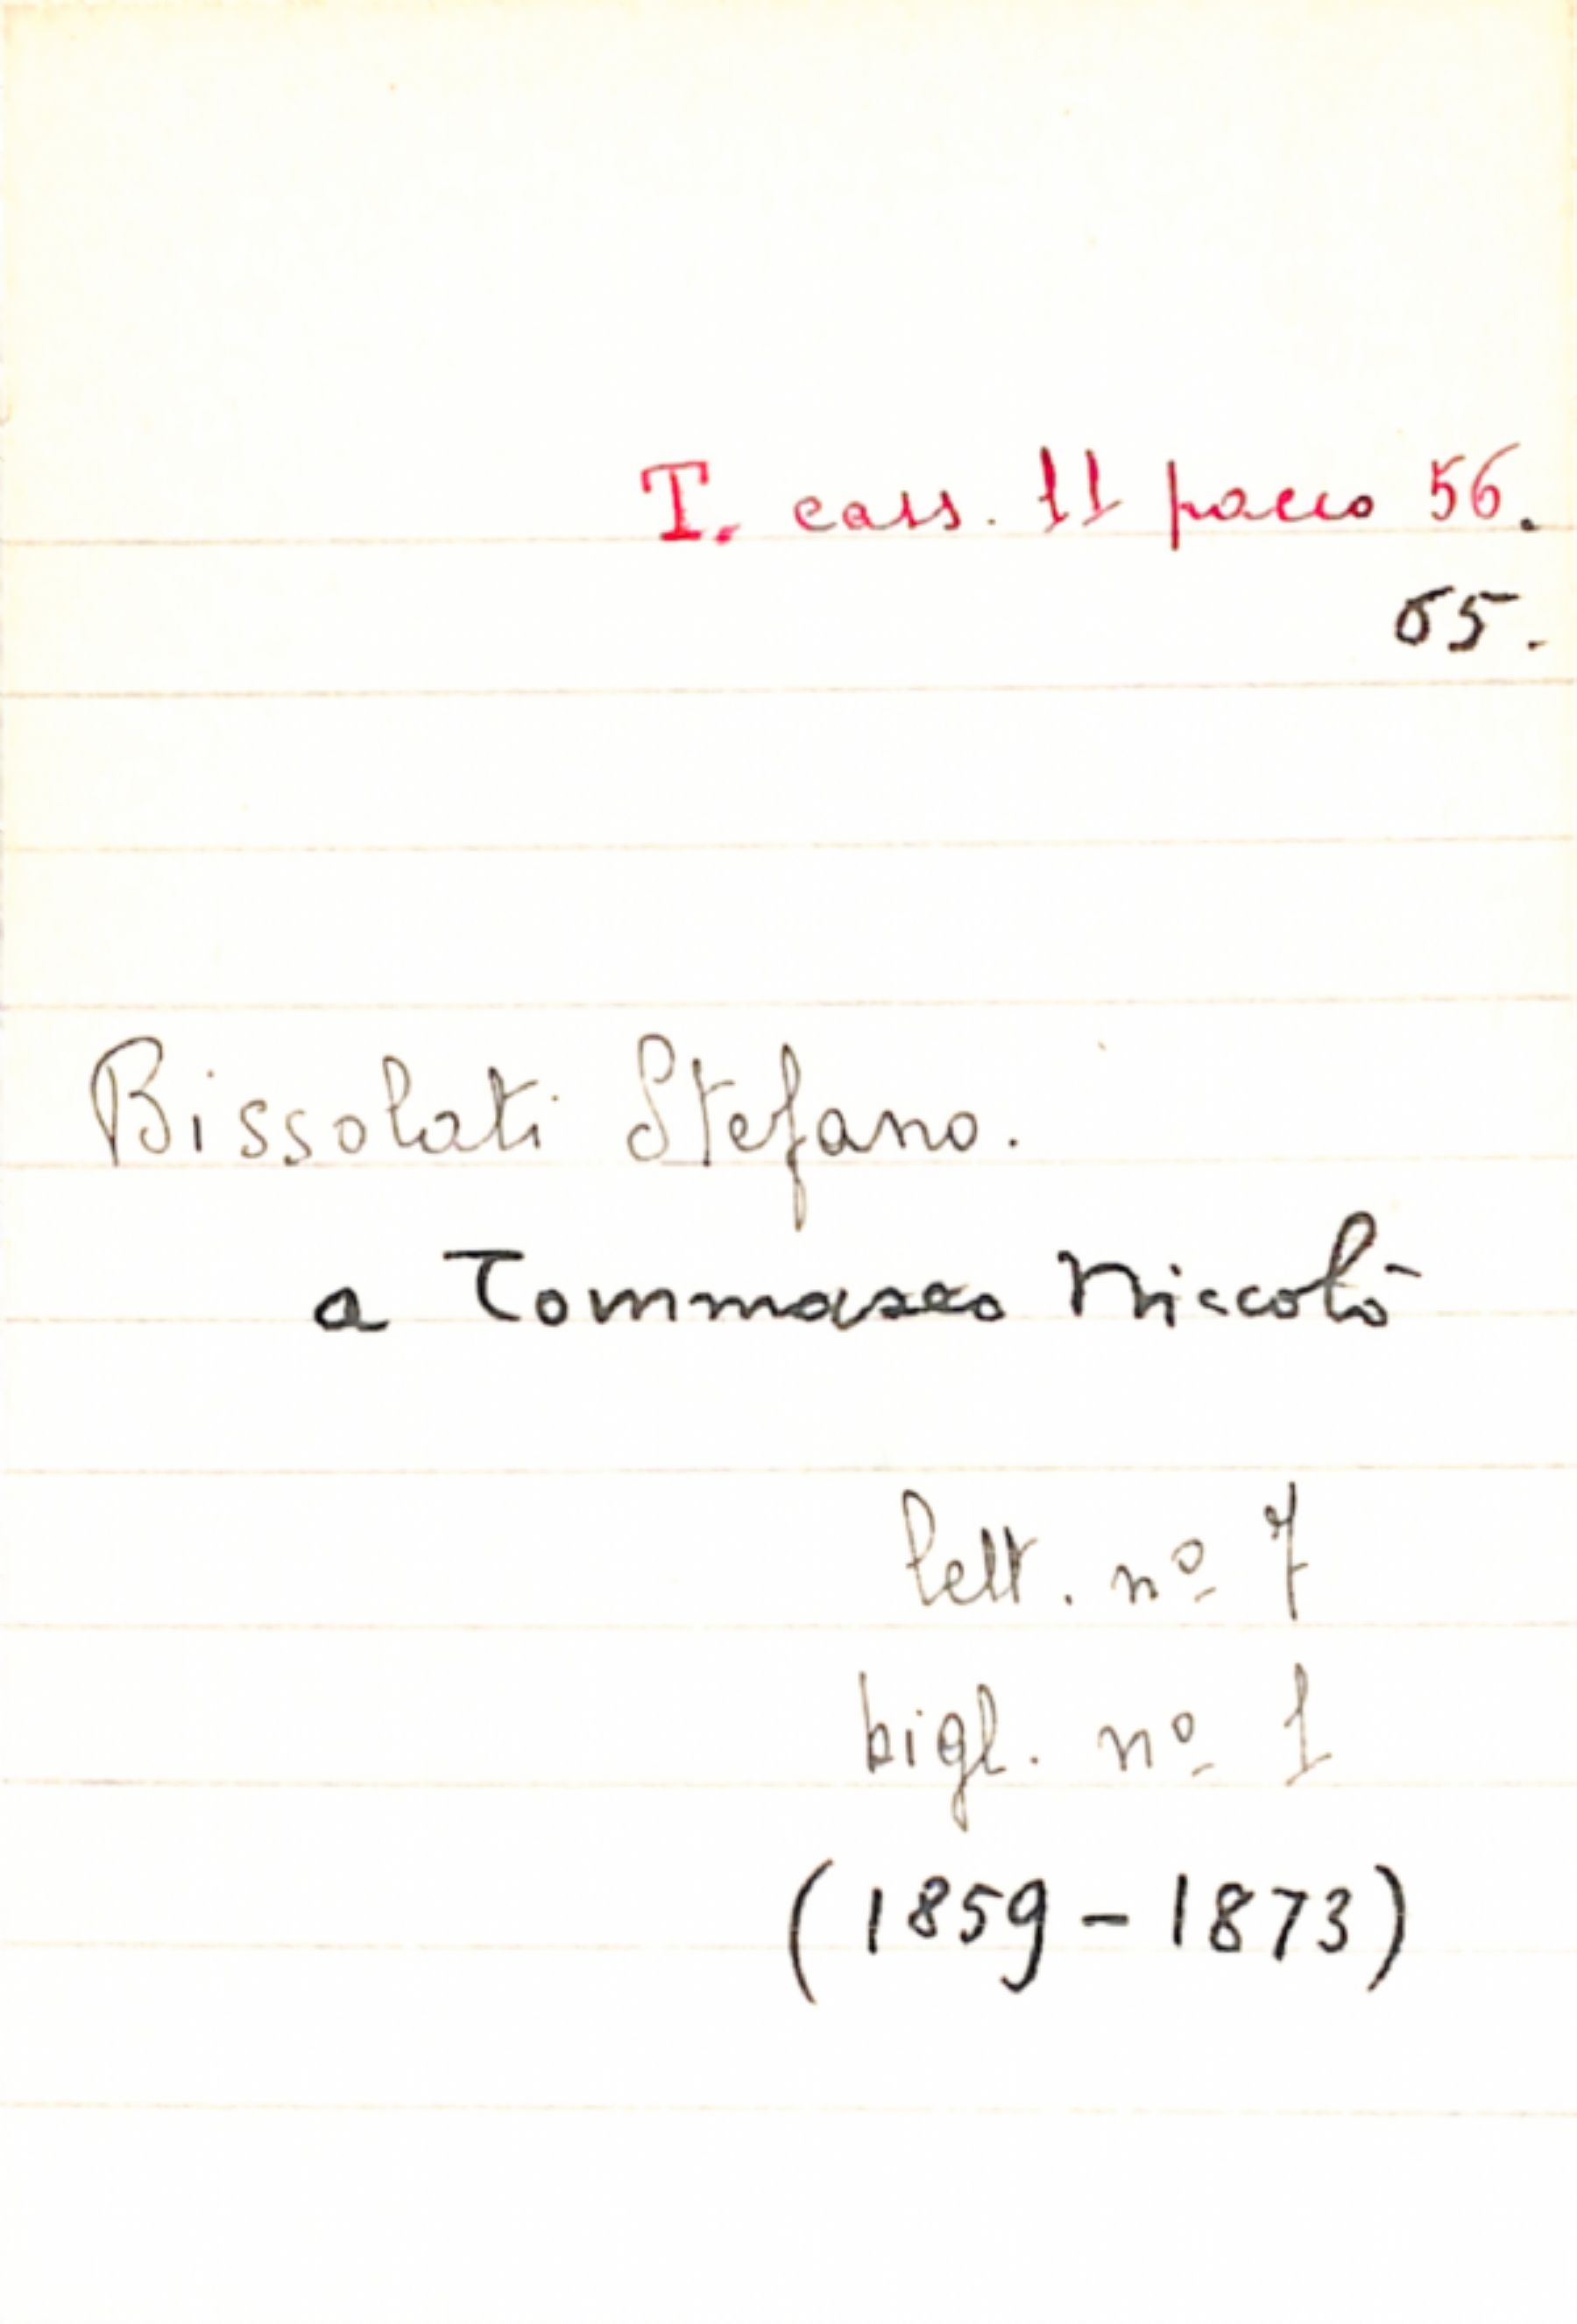 T. cass. 11 pacco 56.
65.
Bissolati Stefano.
a Tommaseo Niccolò
lett. nº 7
bigl. nº 1
(1859-1873)